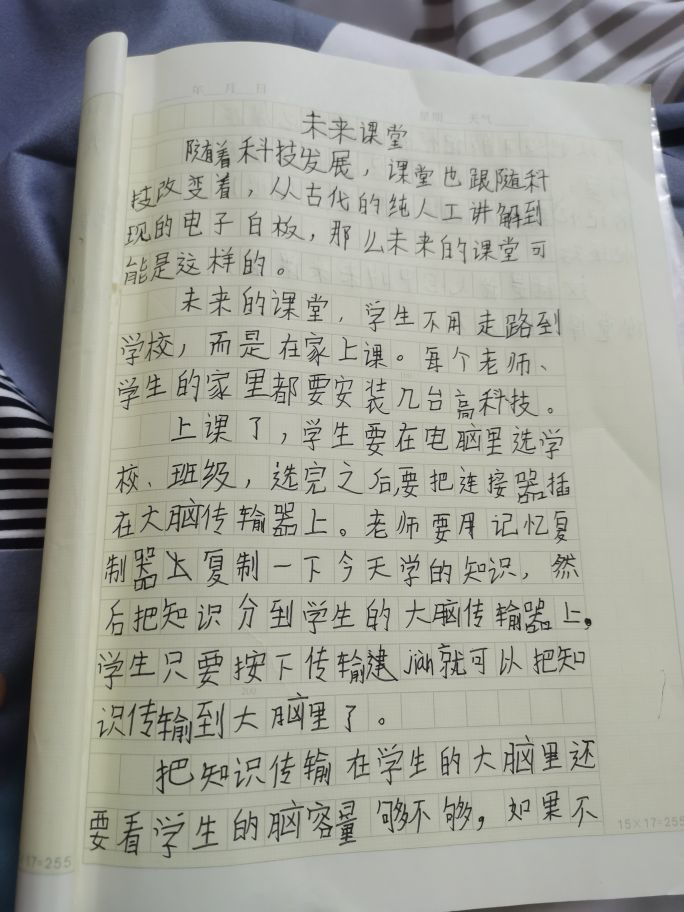 年 月 日
星期 天气
未来课堂
随着科技发展，课堂也跟随科
技改变着，从古代的纯人工讲解到
现的电子白板，那么未来的课堂可
能是这样的。
未来的课堂，学生不用走路到
学校，而是在家上课。每个老师、
学生的家里都要安装几台高科技。
上课了，学生要在电脑里选学
校、班级，选完之后，要把连接器插
在大脑传输器上。老师要用记忆复
制器复制一下今天学的知识，然
后把知识分到学生的大脑传输器上，
学生只要按下传输建jiàn就可以把知
200
识传输到大脑里了。
把知识传输在学生的大脑里还
要看学生的脑容量够不够，如果不
15×17=255
17=255